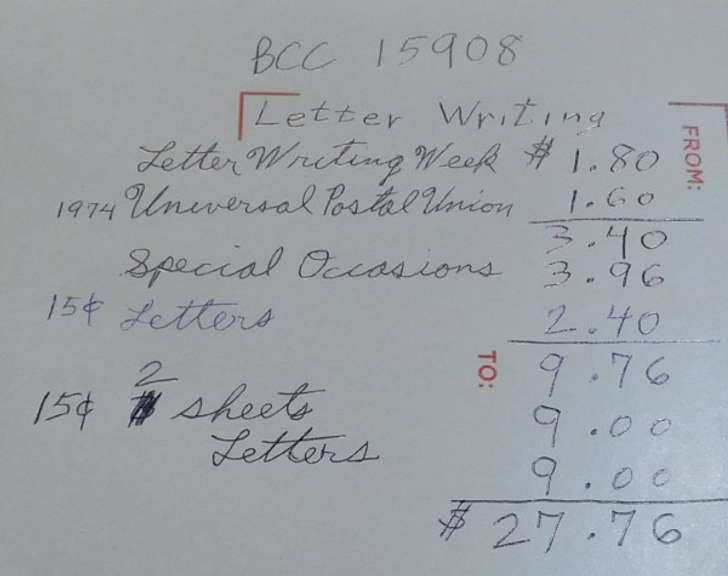 BCC 15908
Letter Writing
FROM:
Letter Writing Week $ 1.80
1974 Universal Postal Union 1.60
3.40
Special Occasions 3.96
15¢ Letters 2.40
TO:
9.76
15¢ 2 sheets 9.00
Letters 9.00
$ 27.76